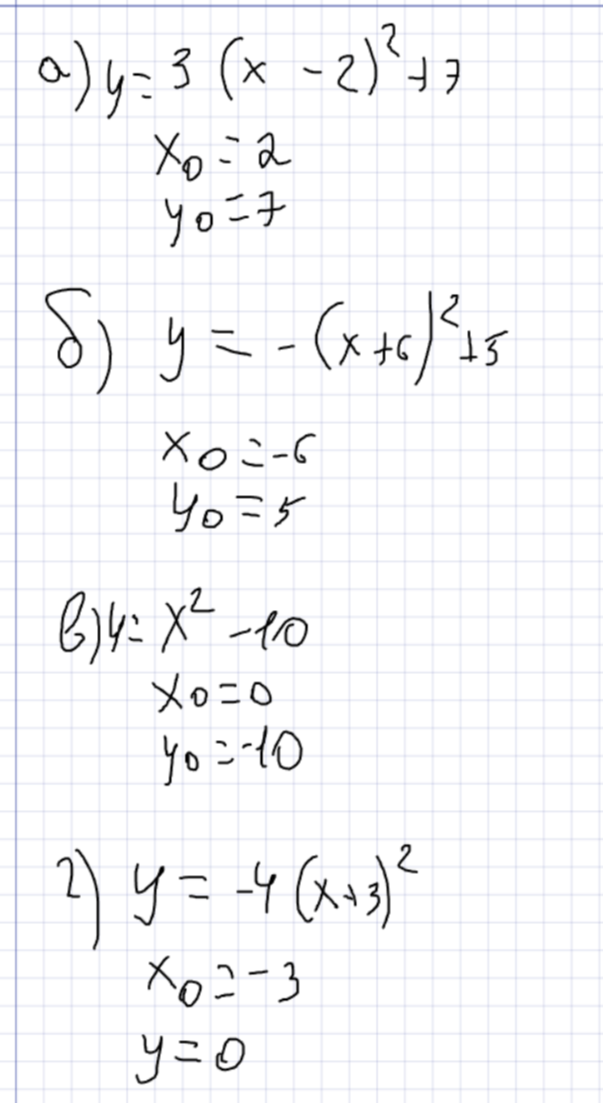 а) y = 3 (x - 2)² + 7
x₀ = 2
y₀ = 7
б) y = - (x + 6)² + 5
x₀ = -6
y₀ = 5
в) y = x² - 10
x₀ = 0
y₀ = -10
г) y = -4 (x + 3)²
x₀ = -3
y = 0